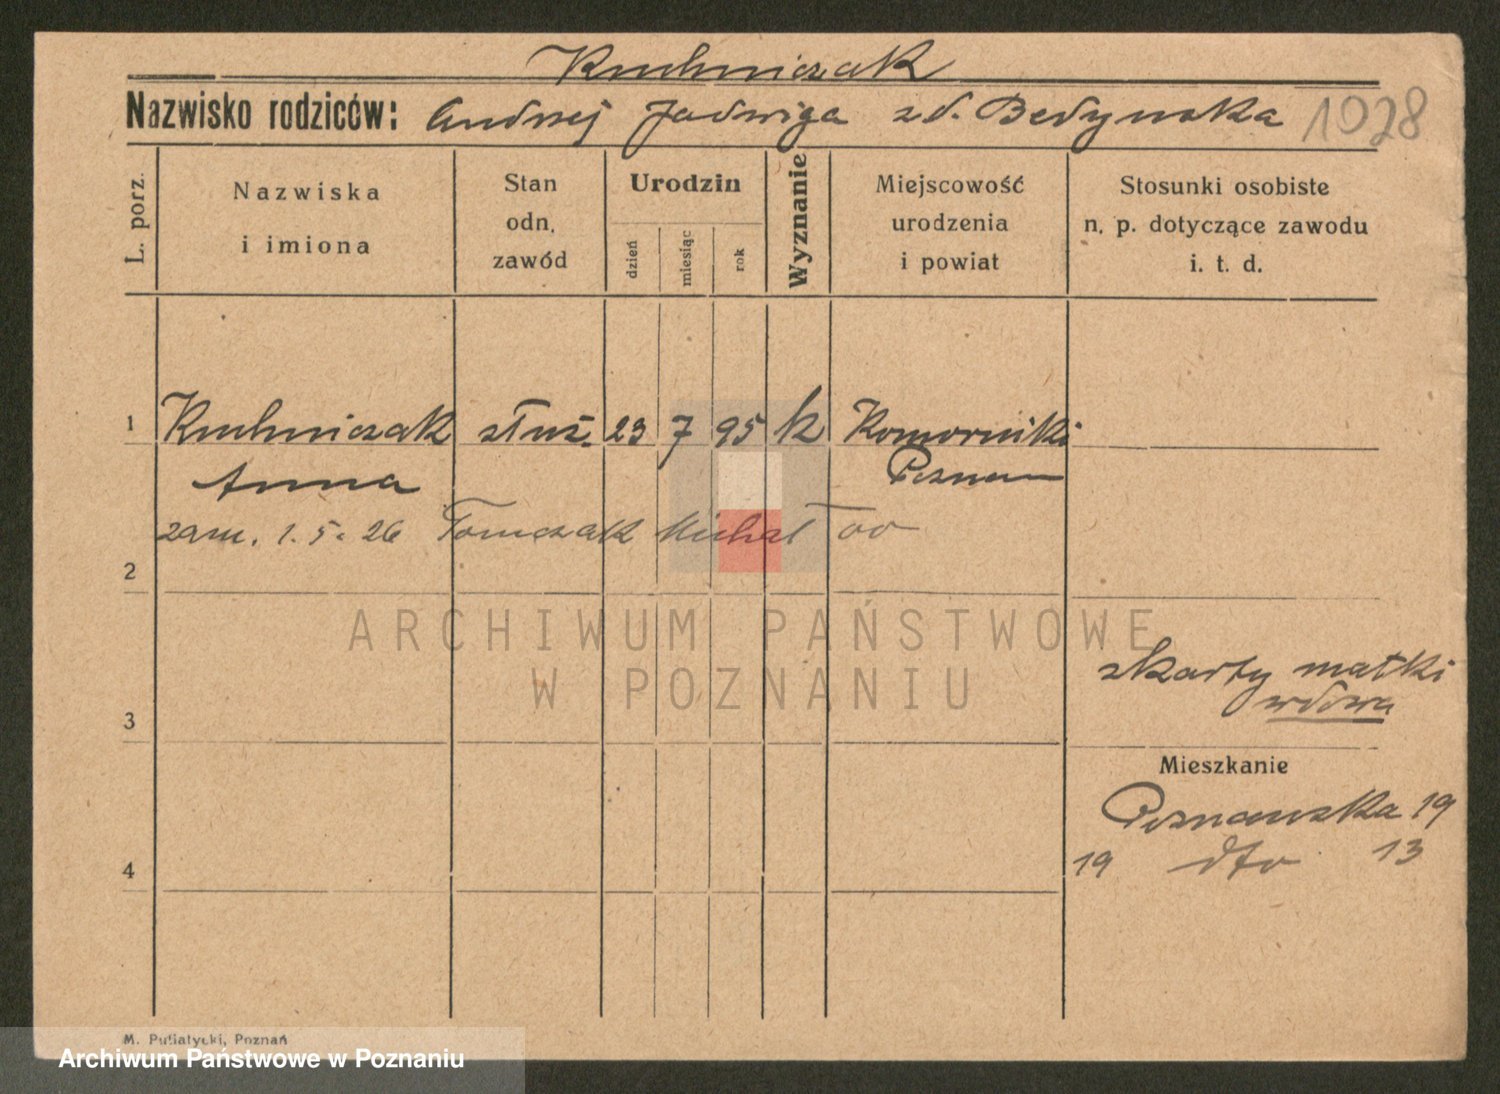 Kuchniczak
Nazwisko rodziców: Andrzej Jadwiga zd. Bedynska 1028
L. porz.
Nazwiska
i imiona
Stan
odn.
zawód
Urodzin
dzień
miesiąc
rok
Wyznanie
Miejscowość
urodzenia
i powiat
Stosunki osobiste
n. p. dotyczące zawodu
i. t. d.
1 Kuchniczak służ. 23 7 95 k Komorniki
Anna Poznan
zam. 1. 5. 26 Tomczak Michał
2
ARCHIWUM PAŃSTWOWE
W POZNANIU
z karty matki
wdowa
3
Mieszkanie
Poznanska 19
19 dto 13
4
M. Putiatycki, Poznań
Archiwum Państwowe w Poznaniu